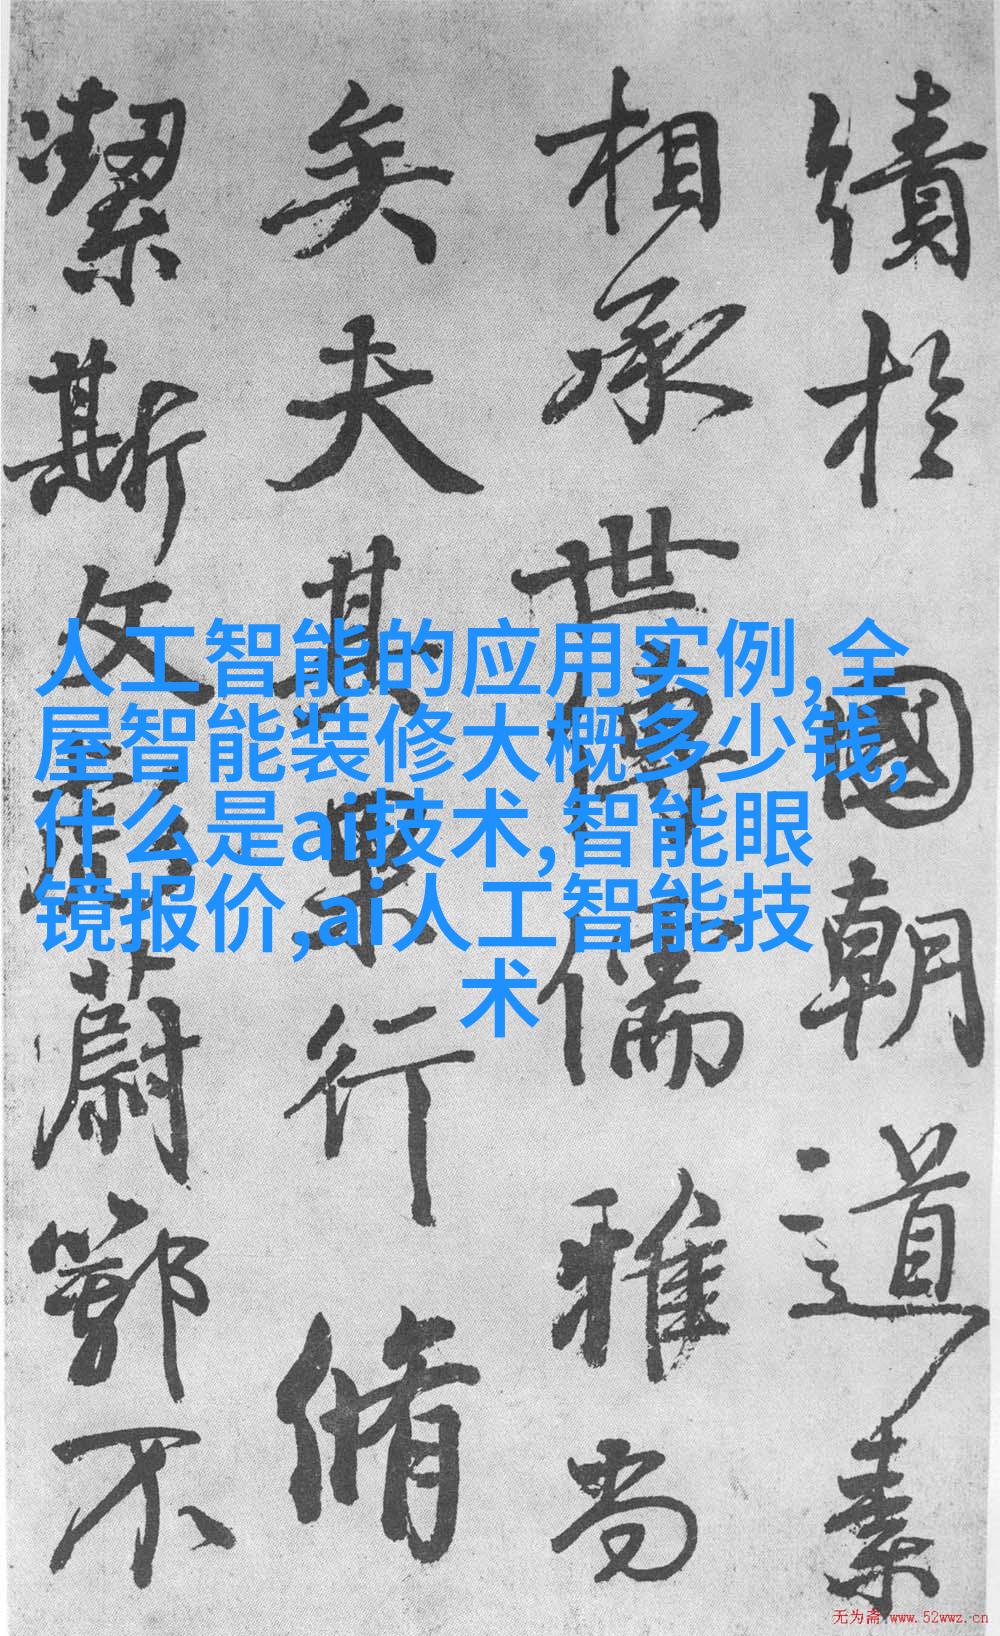 績於國朝道素
相承世傳儒雅尚
矣夫其果行脩
潔斯文彪蔚鄂不
人工智能的应用实例,全
屋智能装修大概多少钱,
什么是ai技术,智能眼
镜报价,ai人工智能技
术
无为斋 www.52wwz.cn